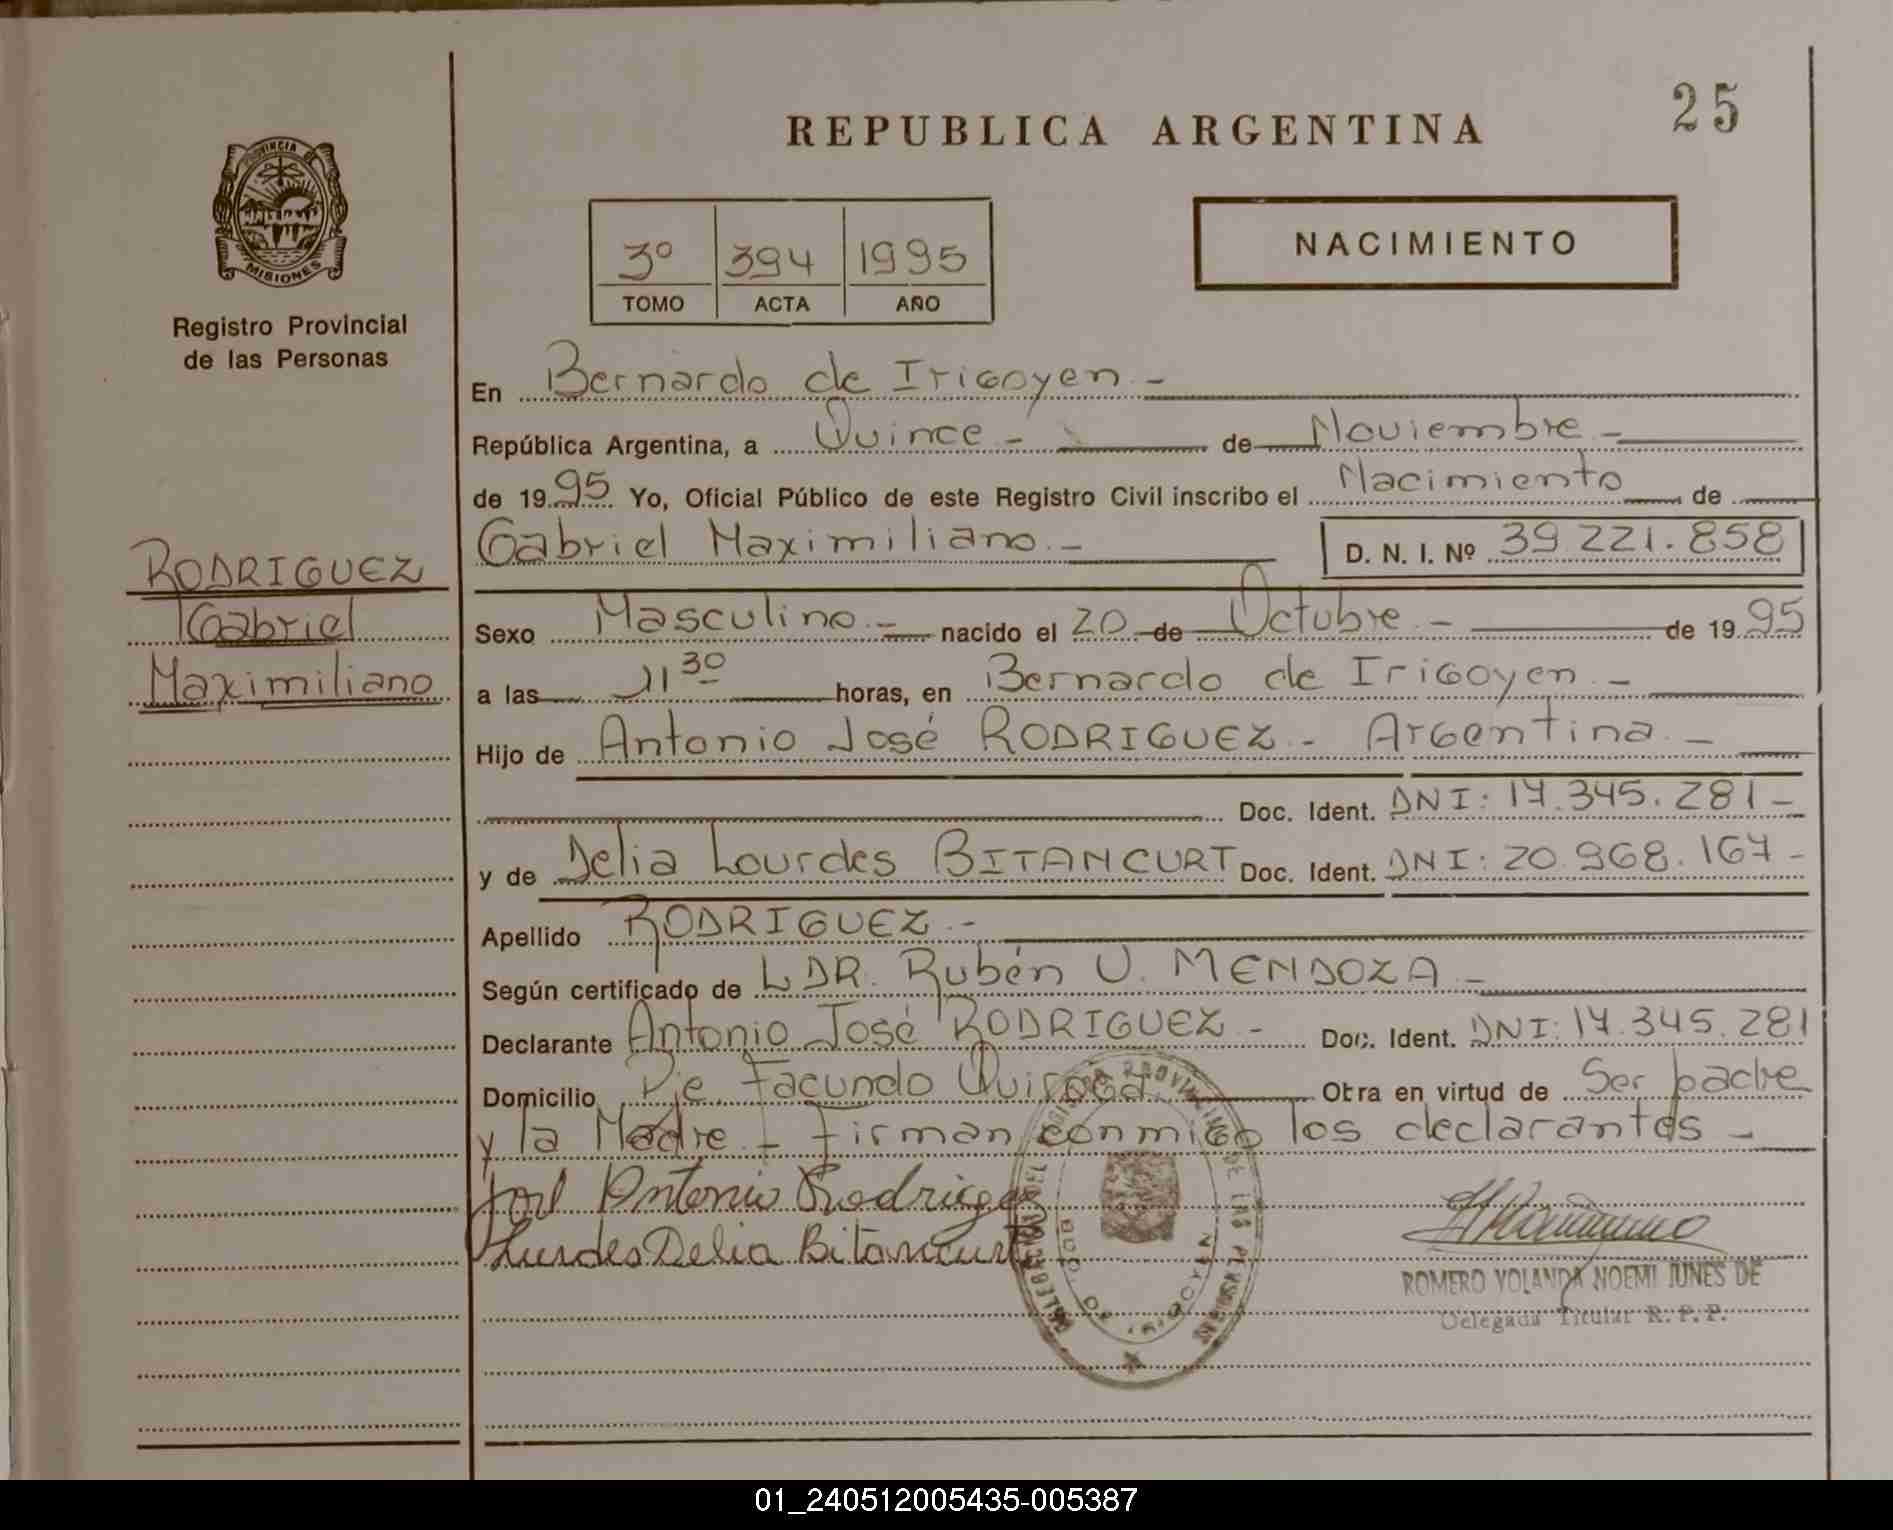 25
REPUBLICA ARGENTINA
PROVINCIA DE
MISIONES
Registro Provincial
de las Personas
3º 394 1995
TOMO ACTA AÑO
NACIMIENTO
En Bernardo de Irigoyen -
República Argentina, a Quince - de Noviembre -
de 1995 Yo, Oficial Público de este Registro Civil inscribo el Nacimiento de
Gabriel Maximiliano. - D. N. I. Nº 39 221.858
RODRIGUEZ
Gabriel
Maximiliano
Sexo Masculino. - nacido el 20 de Octubre. - de 1995
a las 11 30 horas, en Bernardo de Irigoyen. -
Hijo de Antonio José RODRIGUEZ - Argentina. -
Doc. Ident. DNI: 17.345.281 -
y de Delia Lourdes BITANCURT Doc. Ident. DNI: 20.968.167 -
Apellido RODRIGUEZ. -
Según certificado de DR. Rubén U. MENDOZA -
Declarante Antonio José RODRIGUEZ - Doc. Ident. DNI: 17.345.281
Domicilio Pje. Facundo Quiroga. Obra en virtud de Ser padre
y la Madre - Firman conmigo los declarantes -
José Antonio Rodriguez
Lurdes Delia Bitancurt
BDO. DE IRIGOYEN
ROMERO YOLANDA NOEMI JUNES DE
Delegada Titular R. P. P.
01_240512005435-005387